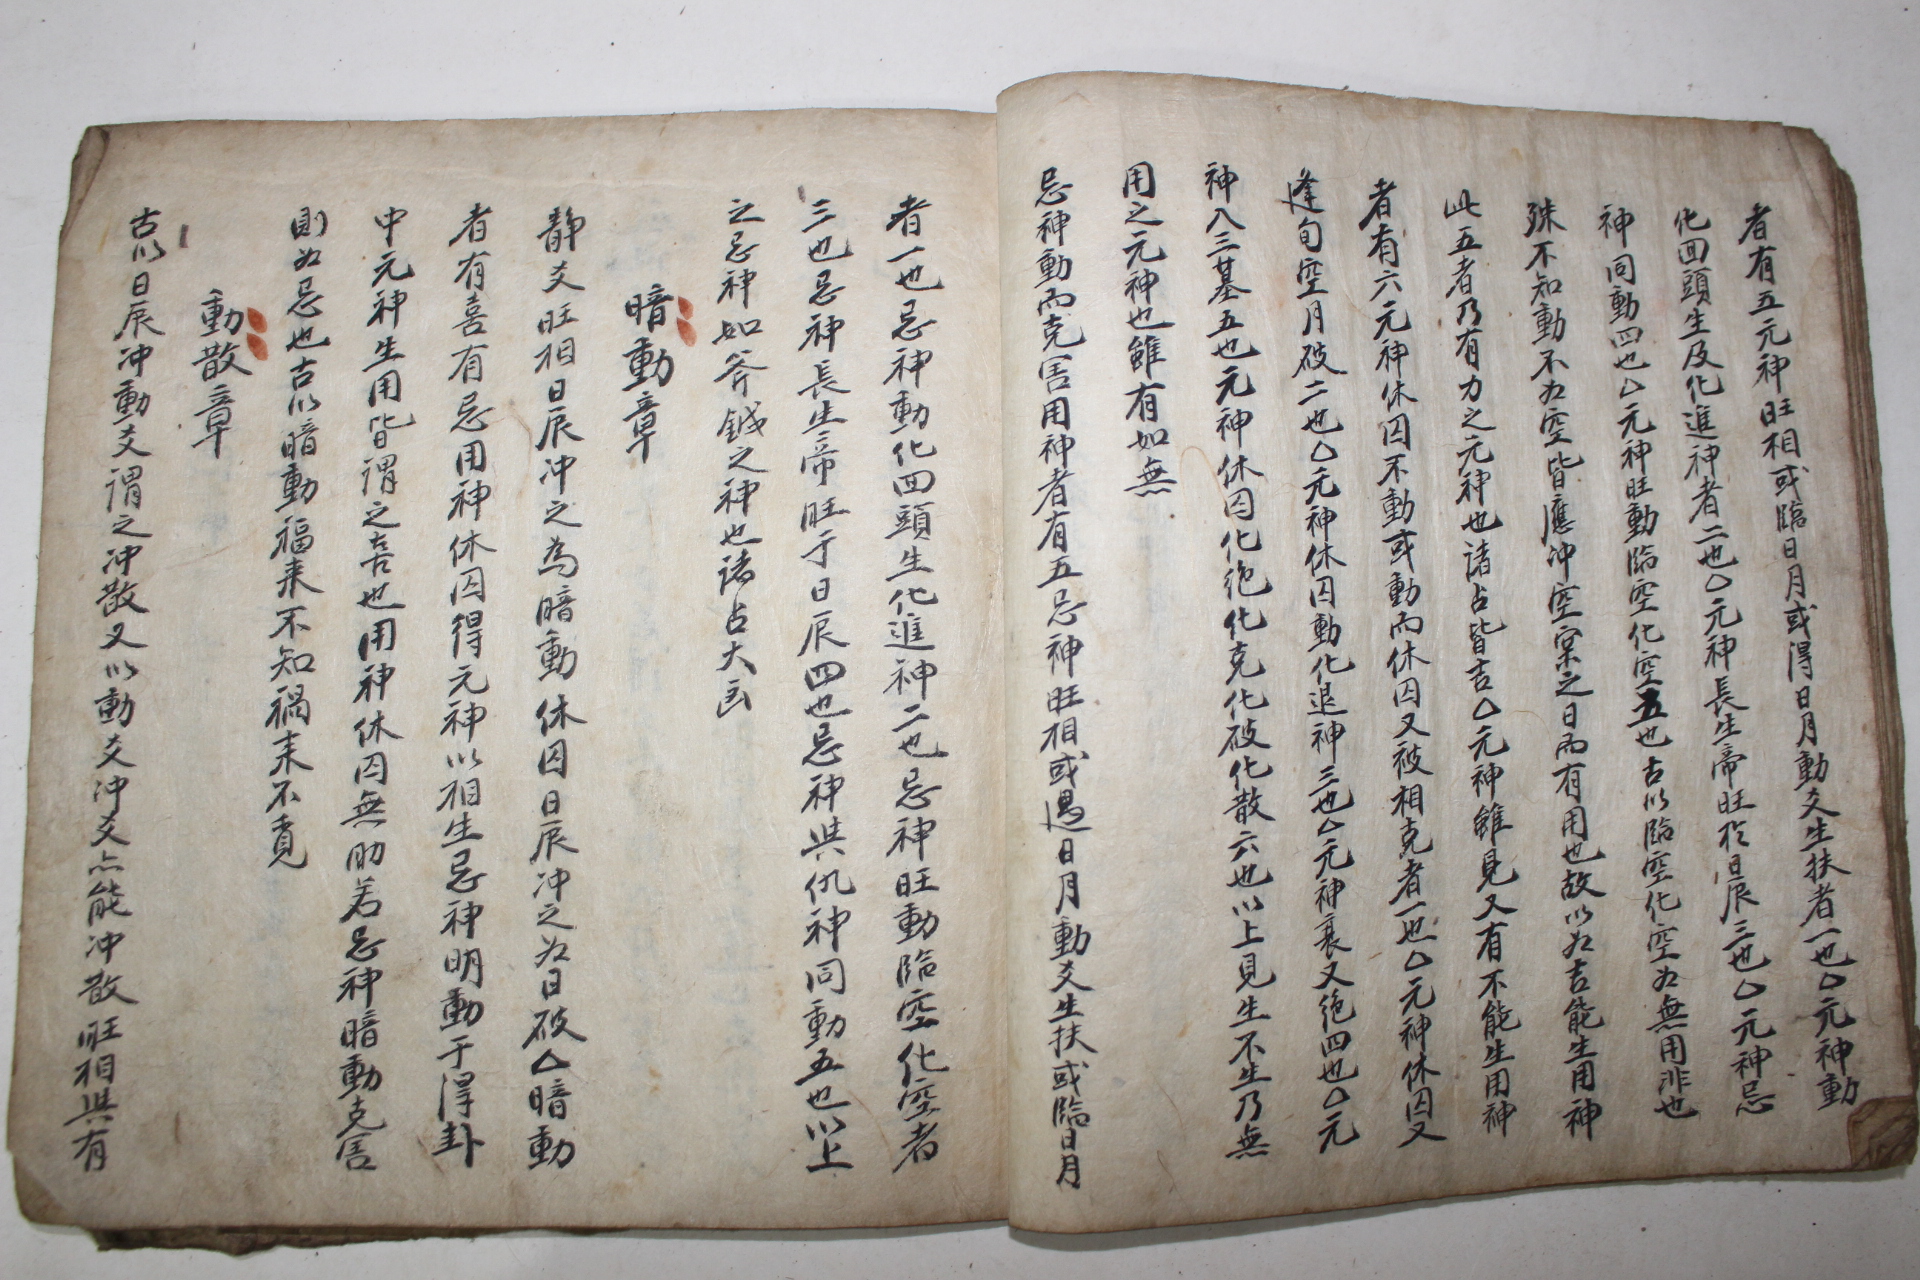 者有五元神旺相或臨日月或得日月動爻生扶者一也△元神動
化回頭生及化進神者二也△元神長生帝旺於日辰三也△元神忌
神同動四也△元神旺動臨空化空五也古以臨空化空为無用非也
殊不知動不为空皆應冲空空宲之日而有用也故以为吉能生用神
此五者乃有力之元神也諸占皆吉△元神雖見又有不能生用神
者有六元神休囚不動或動而休囚又被相克者一也△元神休囚又
逢旬空月破二也△元神休囚動化退神三也△元神衰又绝四也△元
神入三墓五也元神休囚化绝化克化破化散六也以上見生不生乃無
用之元神也雖有如無
忌神動而克害用神者有五忌神旺相或遇日月動爻生扶或臨日月
者一也忌神動化回頭生化進神二也忌神旺動臨空化空者
三也忌神長生帝旺于日辰四也忌神與仇神同動五也以上
之忌神如斧鉞之神也諸占大凶
暗動章
靜爻旺相日辰冲之為暗動休囚日辰冲之为日破△暗動
者有喜有忌用神休囚得元神以相生忌神明動于得卦
中元神生用皆谓之吉也用神休囚無助若忌神暗動克害
則为忌也古以暗動福来不知禍来不覓
動散章
古以日辰冲動爻谓之冲散又以動爻冲爻亦能冲散旺相與有